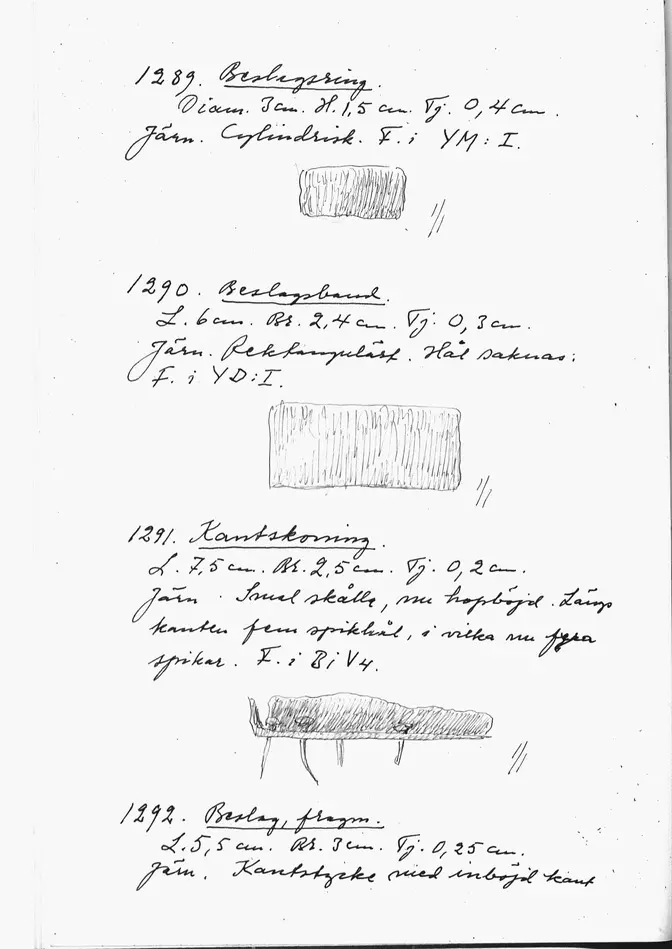 1289. Beslagsring.
Diam. 3 cm. H. 1,5 cm. Tj. 0,4 cm.
Järn. Cylindrisk. F. i YM:I.
1/1
1290. Beslagsband.
L. 6 cm. Br. 2,4 cm. Tj. 0,3 cm.
Järn. Rektangulärt. Hål saknas.
F. i YD:I.
1/1
1291. Kantskoning.
L. 7,5 cm. Br. 2,5 cm. Tj. 0,2 cm.
Järn. Smal skålla, nu hopböjd. Längs
kanten fem spikhål, i vilka nu fyra
spikar. F. i BiV4.
1/1
1292. Beslag, fragm.
L. 5,5 cm. Br. 3 cm. Tj. 0,25 cm.
Järn. Kantstycke med inböjd kant